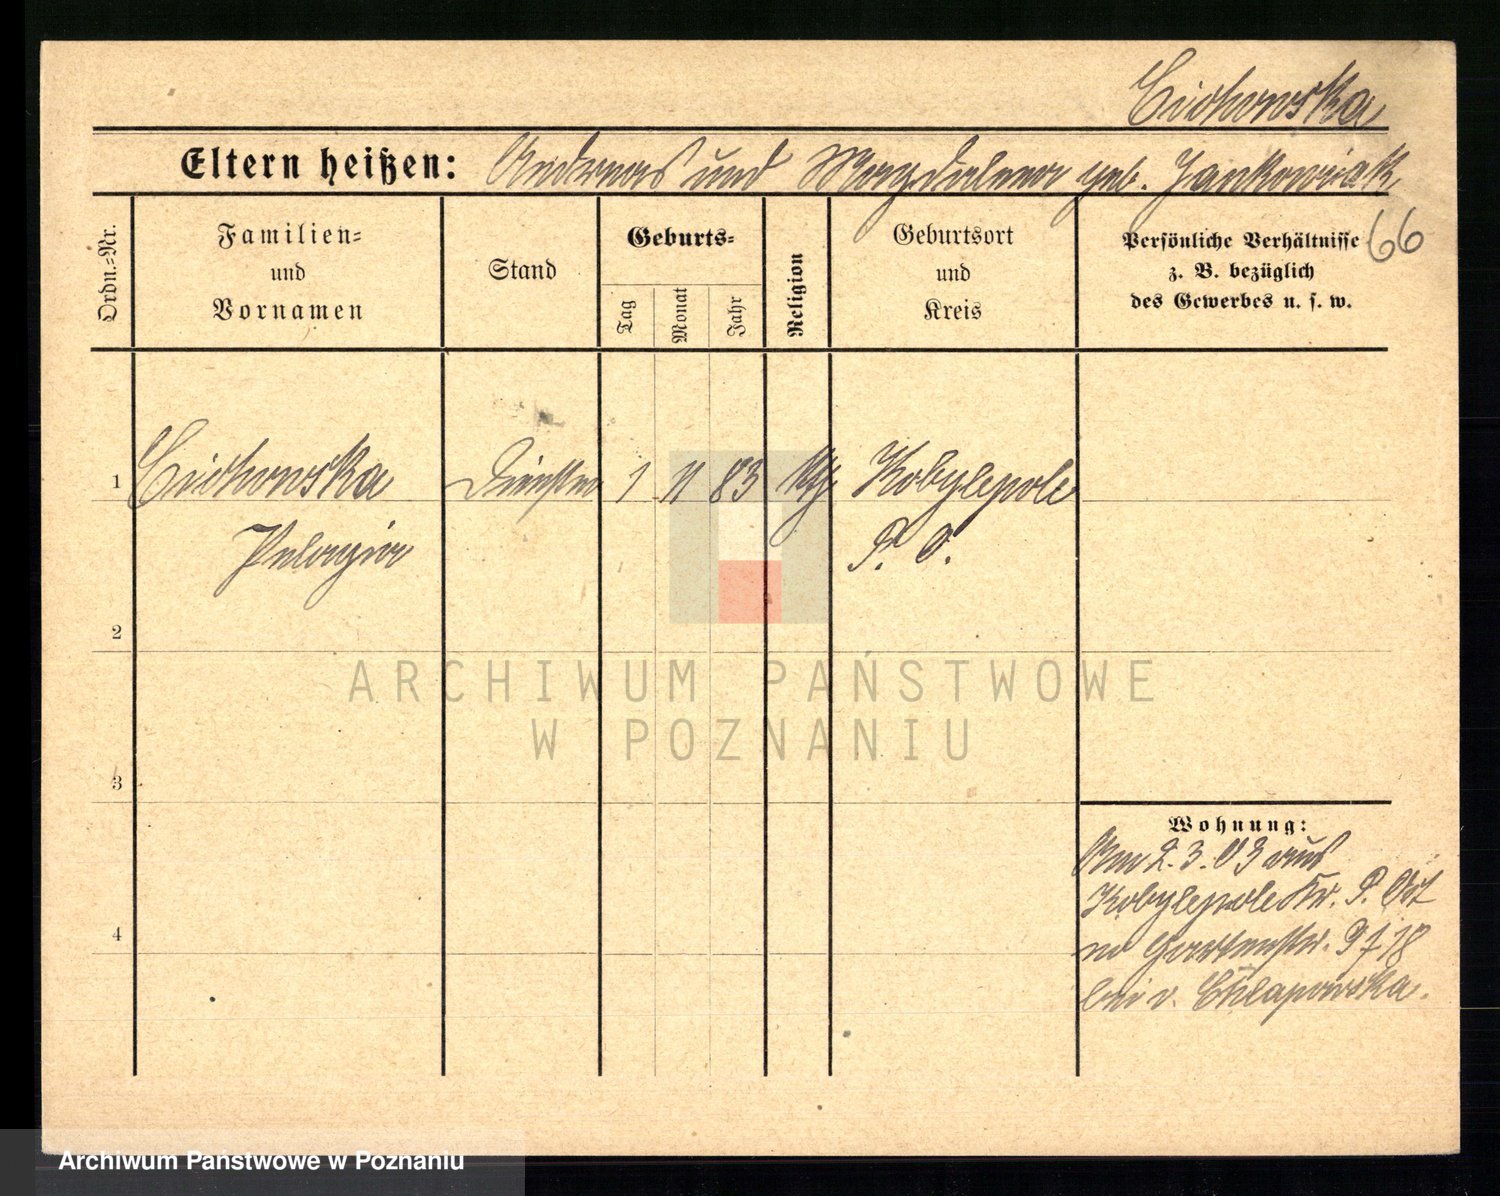 Cichowska
Eltern heißen: Andreas und Magdalena geb. Jankowiak
66
Ordn.-Nr.
Familien-
und
Vornamen
Stand
Geburts-
Tag
Monat
Jahr
Religion
Geburtsort
und
Kreis
Persönliche Verhältnisse
z. B. bezüglich
des Gewerbes u. s. w.
1
Cichowska
Pelagia
1 11 83 kth. Kobylepole
P. O.
2
3
4
Wohnung:
Am 2.3.03 aus
Kobylepole Kr. P. Ost
Gartenstr.
bei v. Chlapowska.
ARCHIWUM PAŃSTWOWE
W POZNANIU
Archiwum Państwowe w Poznaniu